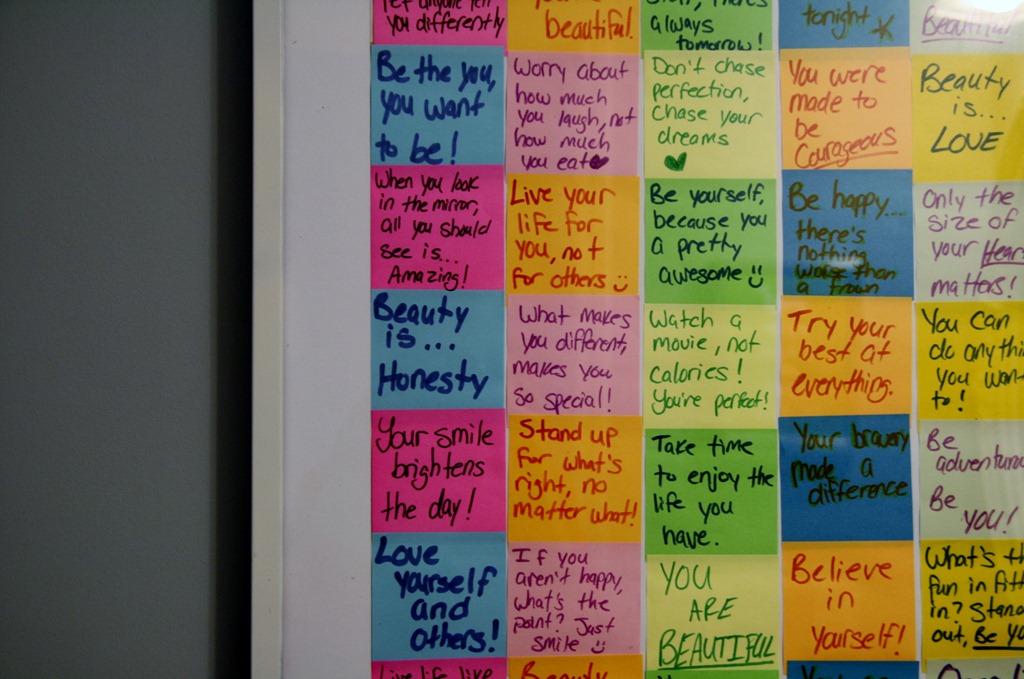 let anyone tell
you differently
You're
beautiful.
there's
always
tomorrow!
tonight
Beautiful
Be the you,
you want
to be!
Worry about
how much
you laugh, not
how much
you eat
Don't chase
perfection,
chase your
dreams
You were
made to
be
Courageous
Beauty
is...
LOVE
When you look
in the mirror,
all you should
see is...
Amazing!
Live your
life for
you, not
for others
Be yourself,
because you
a pretty
awesome
Be happy....
there's
nothing
worse than
a frown
Only the
size of
your Heart
matters!
Beauty
is...
Honesty
What makes
you different,
makes you
so special!
Watch a
movie, not
calories!
You're perfect!
Try your
best at
everything.
You can
do anythin
you wan
to!
Your smile
brightens
the day!
Stand up
for what's
right, no
matter what!
Take time
to enjoy the
life you
have.
Your bravery
made a
difference
Be
adventurou
Be
YOU!
Love
yourself
and
others!
If you
aren't happy,
what's the
point? Just
smile
YOU
ARE
BEAUTIFUL
Believe
in
yourself!
What's th
fun in fitt
in? Stand
out, Be Yo
Live life like
Beauty